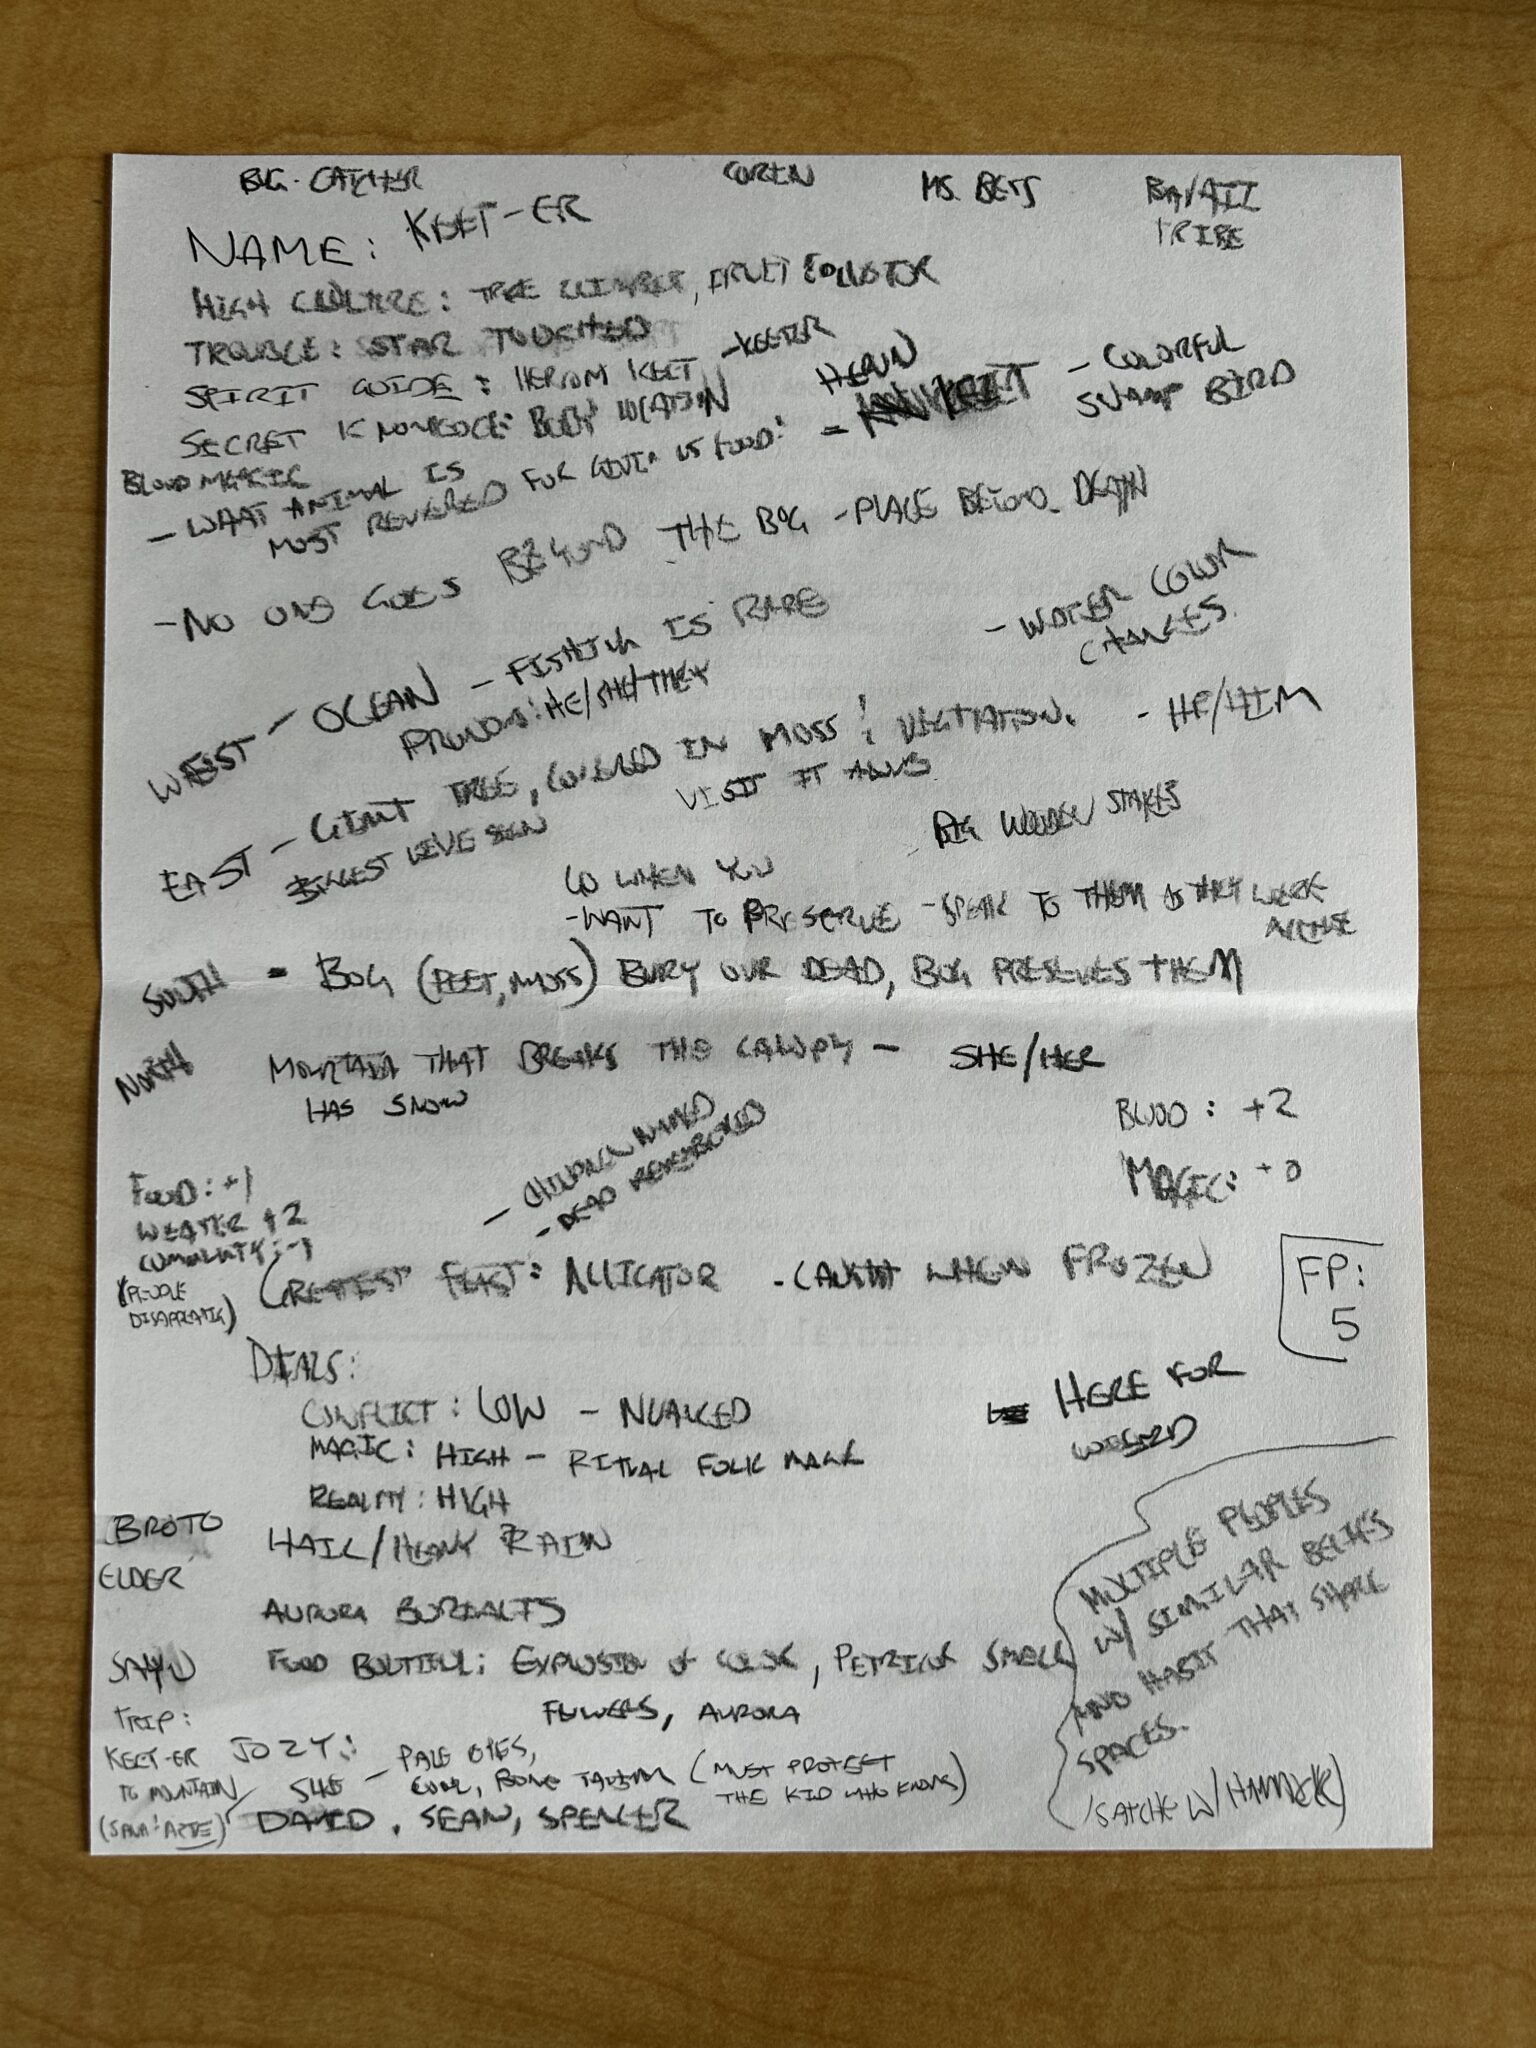 BUG-CATCHER
COREN
MS. BETS
TRIBE
NAME: KEET-ER
HIGH CULTURE: TREE CLIMBER, FRUIT COLLECTOR
TROUBLE: STAR TOUCHED
SPIRIT GUIDE: KEET - KEETER
SECRET KNOWLEDGE: BODY LOCATION
BLOOD MAGIC
- WHAT ANIMAL IS
MOST REVERED FOR GIVIN US FOOD: =
- COLORFUL
SWAMP BIRD
- NO ONE GOES BEYOND THE BOG - PLACE BEYOND DEATH
WEST - OCEAN - FISHING IS RARE
- WATER COLOR
CHANGES.
PRONOUNS: HE/SHE/THEY
EAST - GIANT TREE, COVERED IN MOSS ! VEGITATION. - HE/HIM
VISIT IT
BIG WOODEN STAKES
GO WHEN YOU
- WANT TO PRESERVE - SPEAK TO THEM AS THEY WERE
SOUTH - BOG (PEET, MOSS) BURY OUR DEAD, BOG PRESERVES THEM
NORTH MOUNTAIN THAT BREAKS THE CANOPY - SHE/HER
HAS SNOW
- CHILDREN NAMED
- DEAD REMEMBERED
BLOOD: +2
MAGIC: +0
FOOD: +1
WEATER +2
COMMUNITY: -1
(PEOPLE
GREATEST FEAST: ALLIGATOR - CAUGHT WHEN FROZEN
FP:
5
DIALS:
CONFLICT: LOW - NUANCED
MAGIC: HIGH - RITUAL FOLK MAGIC
REALITY: HIGH
HERE FOR
BROTO
ELDER
HAIL/HEAVY RAIN
AURORA BOREALIS
FOOD BOUTIFUL: EXPLOSION OF COLOR, PETRICOR SMELL
FLOWERS, AURORA
MULTIPLE PEOPLES
W/ SIMILAR BELIEFS
AND HABIT THAT SHARE
SPACES.
TRIP:
KEET-ER
TO MOUNTAIN
JOZY:
SHE - PALE EYES,
(MUST PROTECT
THE KID WHO KNOWS)
DAVID, SEAN, SPENCER